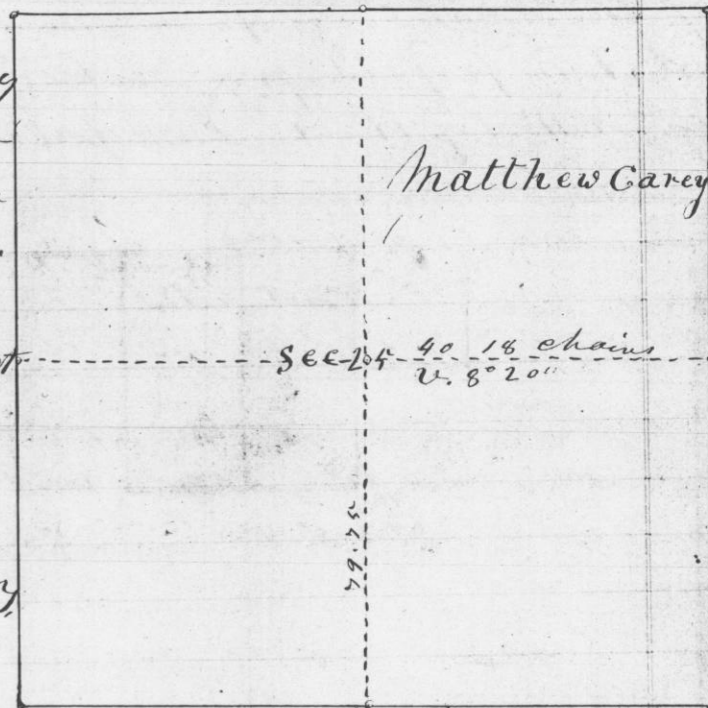 Matthew Carey
Sec 25 40 18 chains
V. 8° 20"